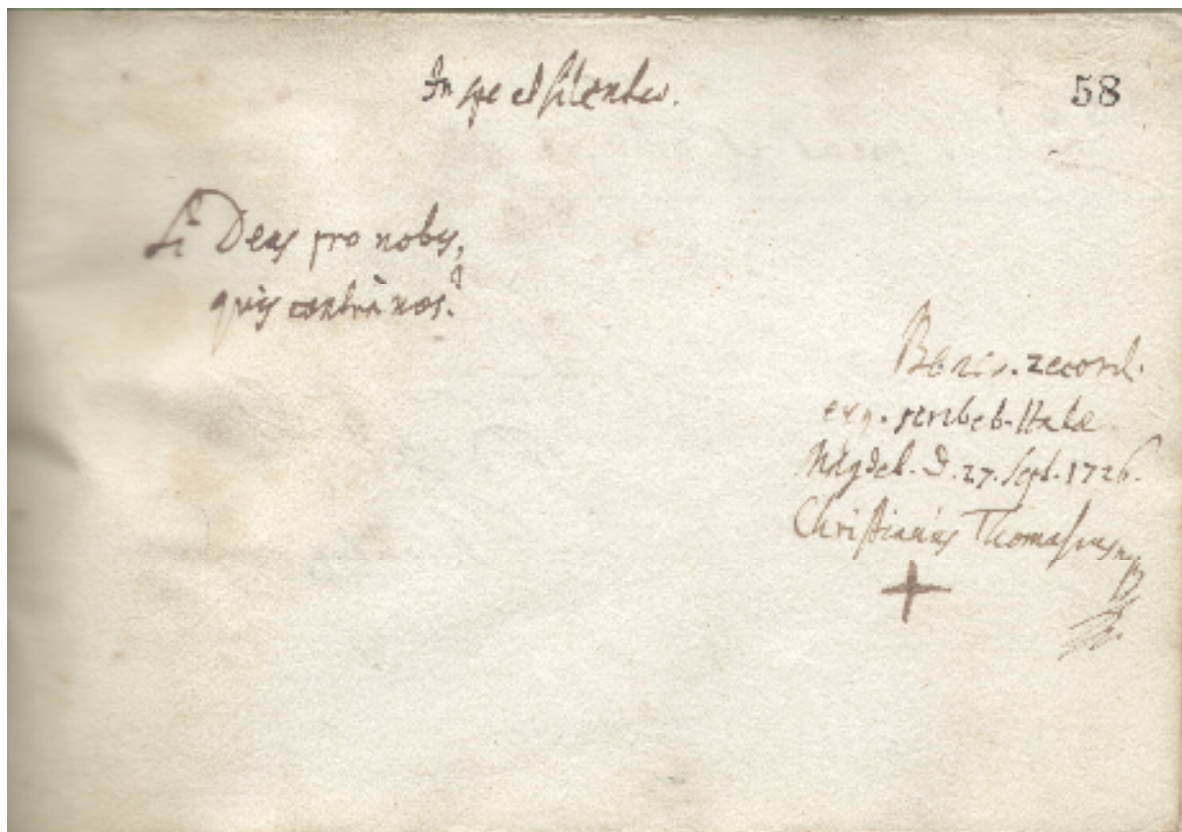 In spe et silentio.
58
Si Deus pro nobis,
quis contrà nos?
Benev. record.
erg. scribeb. Halae
Magdeb. d. 27. Sept. 1726.
Christianus Thomasius